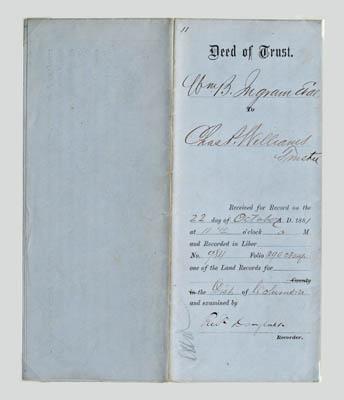 11
Deed of Trust.
Wm B. Ingram et al
To
Chas P. Williams
Trustee
Received for Record on the
22 day of October A. D. 1881
at 11 o'clock M
and Recorded in Liber
No. 984 Folio
one of the Land Records for
County
in the Dist of Columbia
and examined by
Fredk Douglass
Recorder.